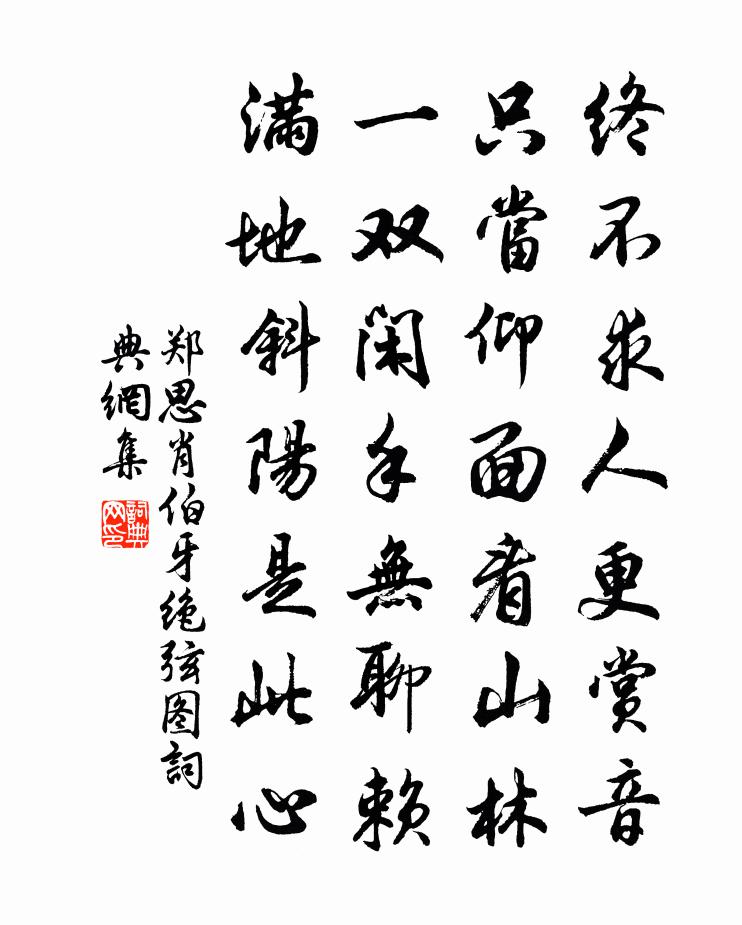 终不求人更赏音
只當仰面看山林
一双闲手無聊賴
滿地斜陽是此心
郑思肖伯牙绝弦图詞
典網集
詞典网印